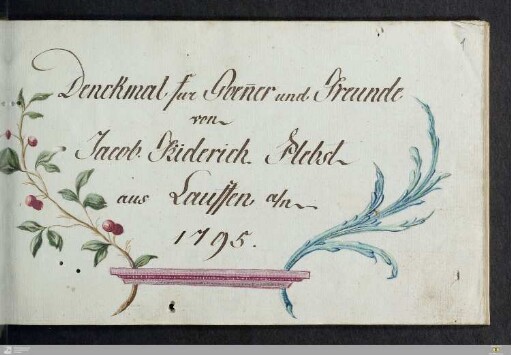 Denckmal fur Goeñer und Freunde
von
Jacob Friderich Klebst
aus Lauffen a/n
1795.